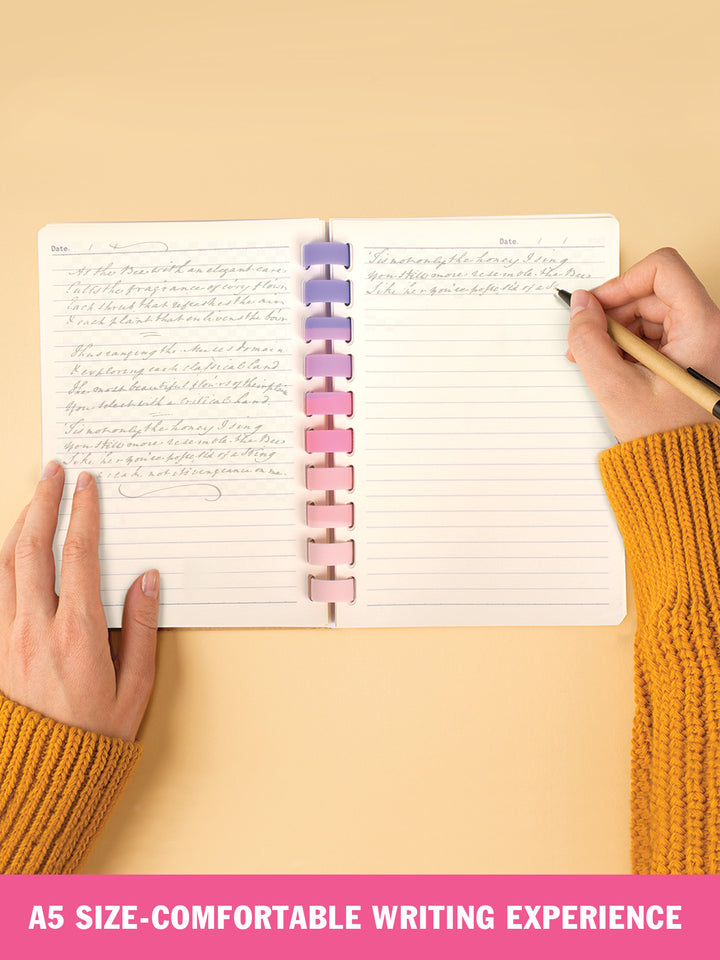 Date. / /
As the Bee with an elegant care
Culls the fragrance of every flower
Each shrub that refreshes the
& each plant that enlivens the bower
Thus ranging the Muse's domain
& exploring each classical land
The most beautiful flow'rs of the
You select with a critical hand.
Tis not only the honey I sing
You still more resemble the Bee
Like her you're possess'd of a sting
not its vengeance on me.
Date. / /
Tis not only the honey I sing
You still more resemble the Bee
Like her you're possess'd of a s
A5 SIZE-COMFORTABLE WRITING EXPERIENCE